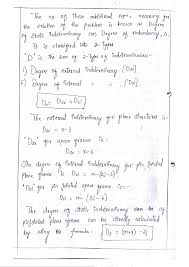 The no of these additional eqn. necessary for
the solution of the problem is known as Degree
of static indeterminacy (or) Degree of redundancy, D.
It is classified into 2-types
"D" is the sum of 2-type of indeterminacies:-
1) Degree of external indeterminacy [Dse]
2) Degree of internal " " [Dsi]
Ds = Dse + Dsi
The external indeterminacy for plane structures is
Dse = r-3
"Dse" for space frame is:-
Dse = r-6
The degree of internal indeterminacy for pin jointed
plane frame is Dsi = m-(2j-3)
"Dsi" for pin jointed space frame is:-
Dsi = m-(3j-6)
The degree of static indeterminacy can be of
pinjointed plane frame can be directly calculated
by using the formula: Ds = (m+r)-2j